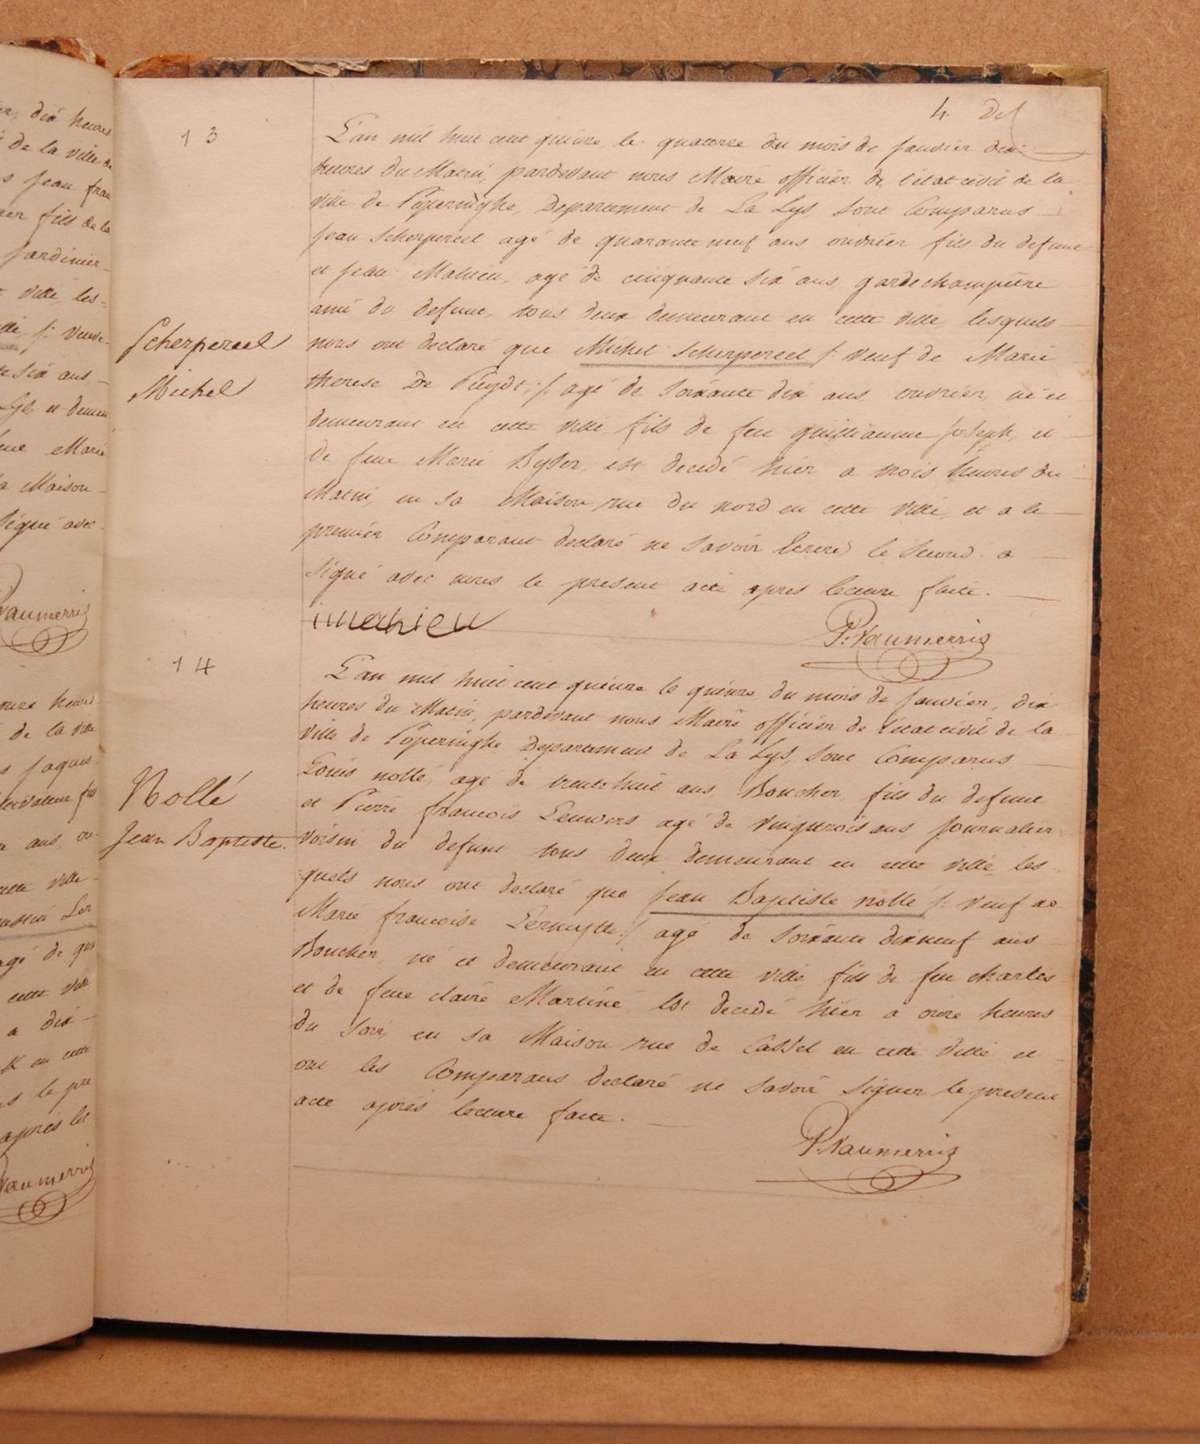 4. 
13
L'an mil huit cent quinze le quatorze du mois de Janvier dix
heures du Matin, pardevant nous Maire officier de l'état civil de la
ville de Poperinghe, Departement de La Lys, sont Comparus
Jean Scherpereel agé de quarante neuf ans ouvrier fils du defunt
et Jean Mahieu, agé de cinquante six ans garde champêtre
ami du defunt, tous deux demeurant en cette ville lesquels
nous ont declaré que Michel Scherpereel /: veuf de Marie
therese De Puydt :/ agé de soixante dix ans ouvrier, né et
demeurant en cette ville fils de feu guillaume Joseph, et
de feue Marie est decedé hier a trois heures du
Matin, en sa Maison rue du nord en cette ville, et a le
premier Comparant declaré ne savoir Ecrire le Second a
signé avec nous le present acte apres lecture faite.
Scherpereel
Michel
imahieu
P. Vanmerris
14
L'an mil huit cent quinze le quinze du mois de Janvier, dix
heures du Matin, pardevant nous Maire officier de l'état civil de la
ville de Poperinghe Departement de La Lys, sont Comparus
Louis nollé, agé de trente huit ans Boucher, fils du defunt
et Pierre francois Leuwers agé de vingt trois ans journalier
voisin du defunt tous deux demeurant en cette ville les-
quels nous ont declaré que Jean Baptiste nollé /: veuf de
Marie francoise :/ agé de soixante dix neuf ans
Boucher, né et demeurant en cette ville fils de feu charles
et de feue claire Martiné Est decedé hier a onze heures
du soir, en sa Maison rue de Cassel en cette ville et
ont les Comparans declaré ne savoir signer le present
acte apres lecture faite.
Nollé
Jean Baptiste.
P. Vanmerris